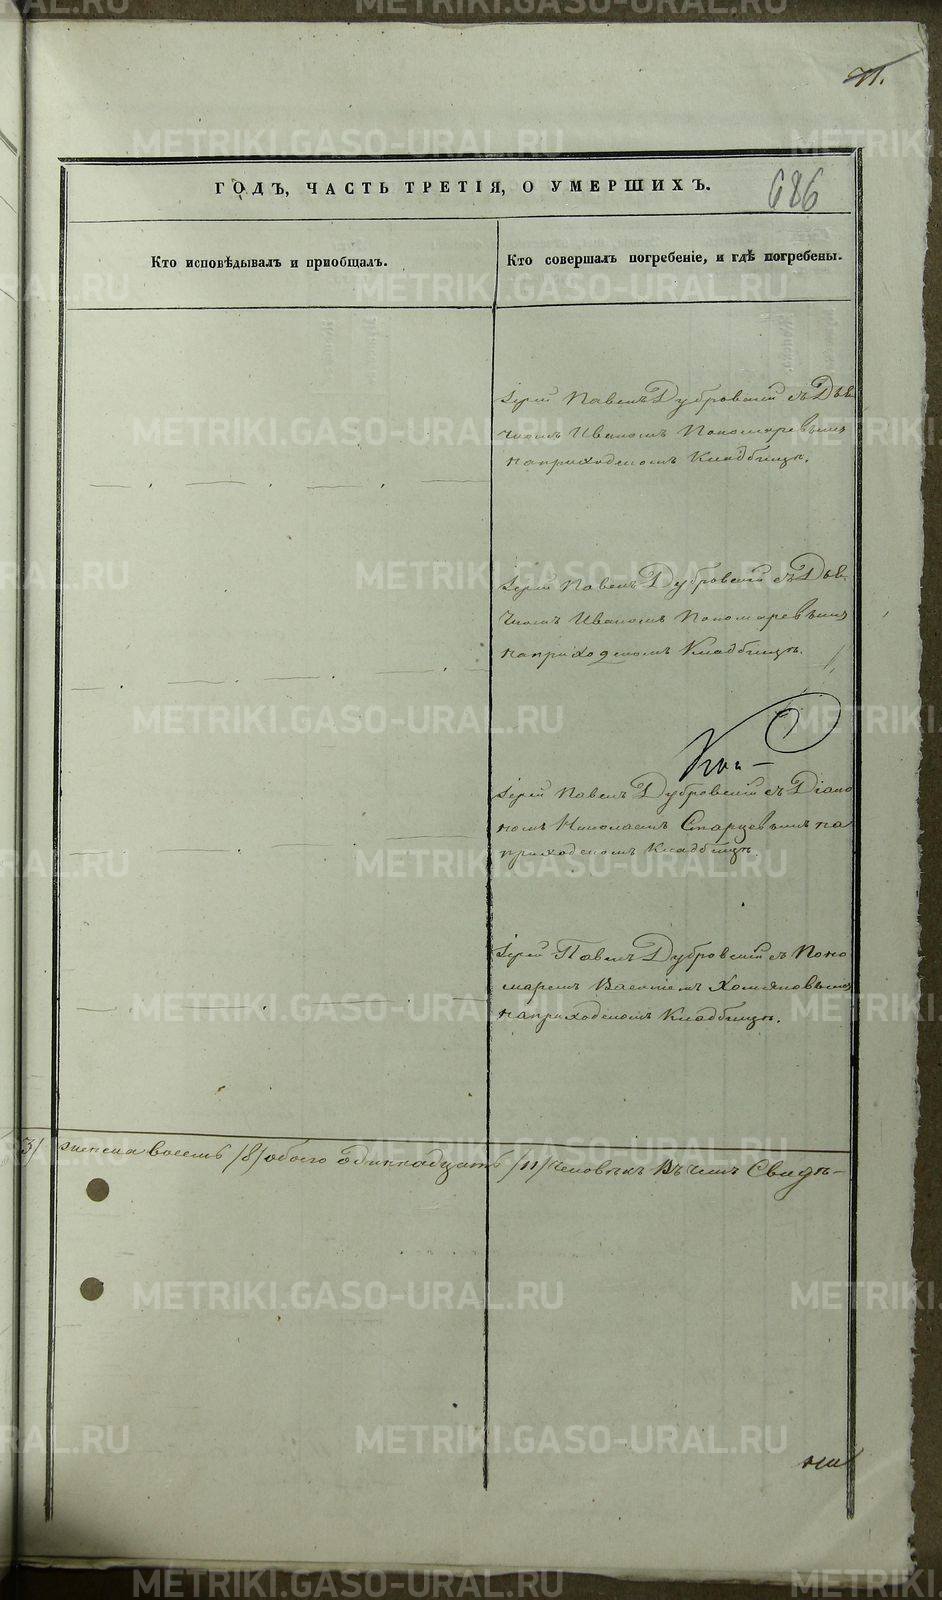 71.
ГОДЪ, ЧАСТЬ ТРЕТІЯ, О УМЕРШИХЪ.
686
Кто исповѣдывалъ и приобщалъ.
Кто совершалъ погребеніе, и гдѣ погребены.
Іерей Павелъ Дубровскій съ Дьяч
комъ Иваномъ Пономаревымъ
на приходскомъ Кладбищѣ.
Іерей Павелъ Дубровскій съ Дьяч
комъ Иваномъ Пономаревымъ
на приходскомъ Кладбищѣ.
Іерей Павелъ Дубровскій съ Діако
номъ Николаемъ Старцевымъ на
приходскомъ Кладбищѣ
Іерей Павелъ Дубровскій съ Поно
маремъ Василіемъ Хомяковымъ
на приходскомъ Кладбищѣ.
3/ женска восемь /8/ обоего одиннадцать /11/ человѣкъ Въ чемъ Свидѣ-
METRIKI.GASO-URAL.RU